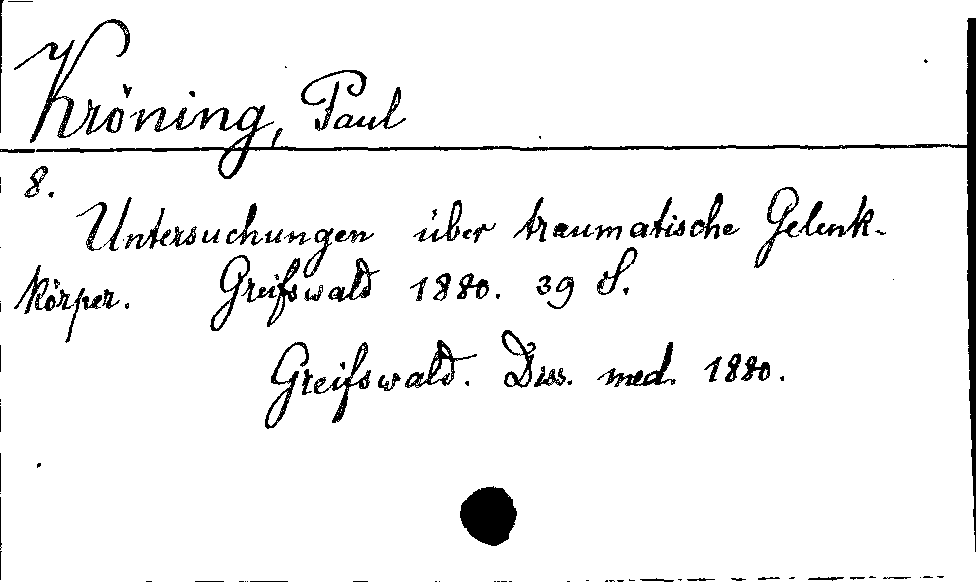 Kröning, Paul
8.
Untersuchungen über traumatische Gelenk-
körper. Greifswald 1880. 39 S.
Greifswald. Diss. med. 1880.